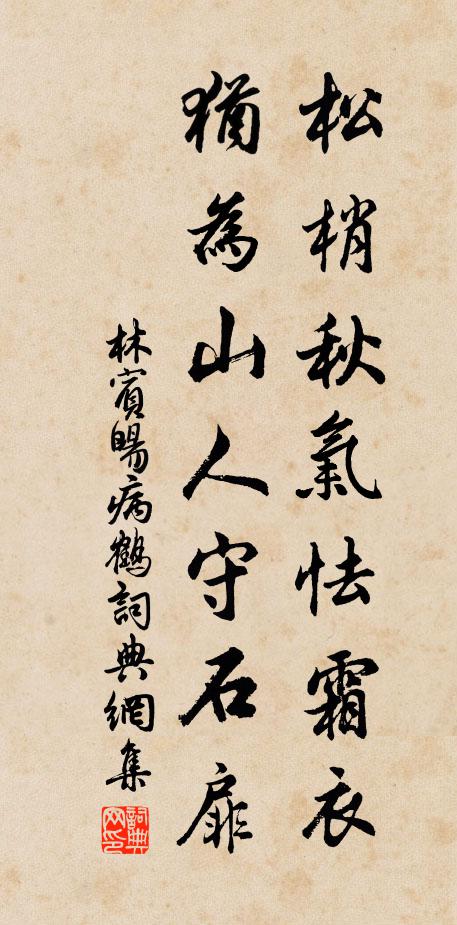 松梢秋氣怯霜衣
猶為山人守石扉
林賓暘病鶴詞典網集
詞典网印